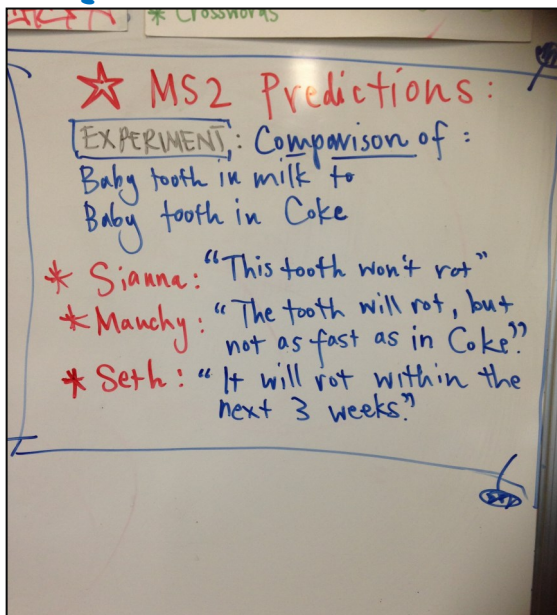 * Crosswords
☆ MS2 Predictions:
EXPERIMENT: Comparison of:
Baby tooth in milk to
Baby tooth in Coke
* Sianna: "This tooth won't rot"
* Mauchy: "The tooth will rot, but
not as fast as in Coke."
* Seth: "It will rot within the
next 3 weeks."